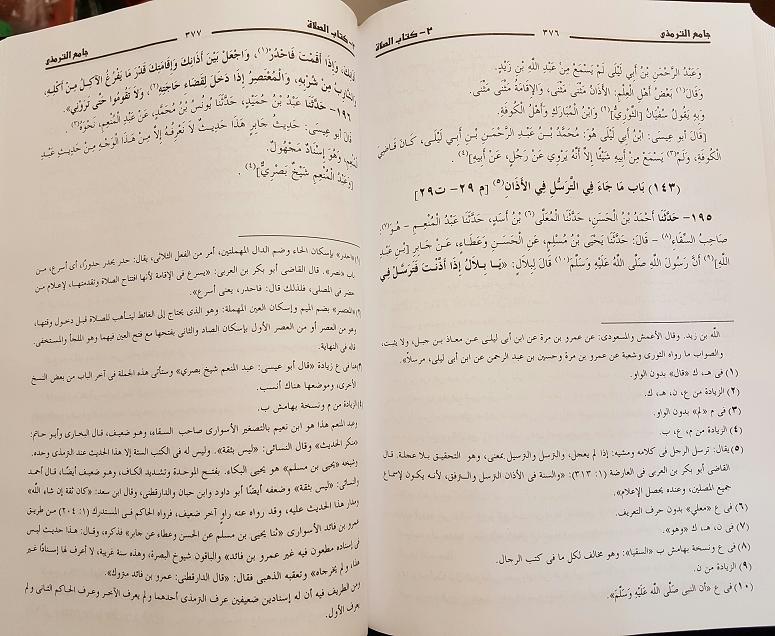 جامع الترمذي
٣٧٦
٢- كتاب الصلاة
وَعَبْدُ الرَّحْمَنِ بْنُ أَبِي لَيْلَى لَمْ يَسْمَعْ مِنْ عَبْدِ اللَّهِ بْنِ زَيْدٍ.
وَقَالَ(١) بَعْضُ أَهْلِ الْعِلْمِ: الْأَذَانُ مَثْنَى مَثْنَى، وَالْإِقَامَةُ مَثْنَى مَثْنَى.
وَبِهِ يَقُولُ سُفْيَانُ [الثَّوْرِيُّ](٢) وَابْنُ الْمُبَارَكِ وَأَهْلُ الْكُوفَةِ.
[قَالَ أَبُو عِيسَى: ابْنُ أَبِي لَيْلَى هُوَ: مُحَمَّدُ بْنُ عَبْدِ الرَّحْمَنِ بْنِ أَبِي لَيْلَى، كَانَ قَاضِيَ
الْكُوفَةِ، وَلَمْ(٣) يَسْمَعْ مِنْ أَبِيهِ شَيْئًا إِلَّا أَنَّهُ يَرْوِي عَنْ رَجُلٍ، عَنْ أَبِيهِ](٤).
(١٤٣) بَابُ مَا جَاءَ فِي التَّرَسُّلِ فِي الْأَذَانِ(٥) [م ٢٩- ت٢٩]
١٩٥- حَدَّثَنَا أَحْمَدُ بْنُ الْحَسَنِ، حَدَّثَنَا الْمُعَلَّى(٦) بْنُ أَسَدٍ، حَدَّثَنَا عَبْدُ الْمُنْعِمِ - هُوَ(٧):
صَاحِبُ السِّقَاءِ(٨) - قَالَ: حَدَّثَنَا يَحْيَى بْنُ مُسْلِمٍ، عَنِ الْحَسَنِ وَعَطَاءٍ، عَنْ جَابِرِ [بْنِ عَبْدِ
اللَّهِ](٩) أَنَّ رَسُولَ اللَّهِ صَلَّى اللَّهُ عَلَيْهِ وَسَلَّمَ(١٠) قَالَ لِبِلَالٍ: «يَا بِلَالُ إِذَا أَذَّنْتَ فَتَرَسَّلْ فِي
الله بن زيد. وقال الأعمش والمسعودى: عن عمرو بن مرة عن ابن أبى ليلى عن معاذ بن جبل، ولا يثبت،
والصواب ما رواه الثورى وشعبة عن عمرو بن مرة وحسين بن عبد الرحمن عن ابن أبى ليلى، مرسلًا».
(١) فى هـ، ك «قال» بدون الواو.
(٢) الزيادة من ع، ن، هـ، ك.
(٣) فى م «لم» بدون الواو.
(٤) الزيادة من م، ع، ب.
(٥) يقال: ترسل الرجل فى كلامه ومشيه: إذا لم يعجل، والترسل والترسيل بمعنى، وهو التحقيق بلا عجلة. قال
القاضى أبو بكر بن العربى فى العارضة (١: ٣١٣): «والسنة فى الأذان الترسل والترفق، لأنه يكون لإسماع
جميع المصلين، وعنده يحصل الإعلام».
(٦) فى ع «معلي» بدون حرف التعريف.
(٧) فى ن، هـ، ك «وهو».
(٨) فى ع ونسخة بهامش ب «السقيا»: وهو مخالف لكل ما فى كتب الرجال.
(٩) الزيادة من ن.
(١٠) فى ع «أن النبى صَلَّى اللَّهُ عَلَيْهِ وَسَلَّمَ».
٢- كتاب الصلاة
٣٧٧
جامع الترمذي
أَذَانِكَ، وَإِذَا أَقَمْتَ فَاحْدُرْ(١)، وَاجْعَلْ بَيْنَ أَذَانِكَ وَإِقَامَتِكَ قَدْرَ مَا يَفْرُغُ الْآكِلُ مِنْ أَكْلِهِ،
وَالشَّارِبُ مِنْ شُرْبِهِ، وَالْمُعْتَصِرُ إِذَا دَخَلَ لِقَضَاءِ حَاجَتِهِ(٢)، وَلَا تَقُومُوا حَتَّى تَرَوْنِي».
١٩٦- حَدَّثَنَا عَبْدُ بْنُ حُمَيْدٍ، حَدَّثَنَا يُونُسُ بْنُ مُحَمَّدٍ، عَنْ عَبْدِ الْمُنْعِمِ، نَحْوَهُ(٣).
قَالَ أَبُو عِيسَى: حَدِيثُ جَابِرٍ هَذَا حَدِيثٌ لَا نَعْرِفُهُ إِلَّا مِنْ هَذَا الْوَجْهِ مِنْ حَدِيثِ عَبْدِ
الْمُنْعِمِ، وَهُوَ إِسْنَادٌ مَجْهُولٌ.
[وَعَبْدُ الْمُنْعِمِ شَيْخٌ بَصْرِيٌّ](٤).
(١) «احدر» بإسكان الحاء وضم الدال المهملتين، أمر من الفعل الثلاثى، يقال: حدر يحدر حدورًا، أى أسرع، من
باب «نصر». قال القاضى أبو بكر بن العربى: «يسرع فى الإقامة لأنها افتتاح الصلاة وتقدمتها، لإعلام من
حضر فى المصلى، فلذلك قال: فاحدر، يعنى أسرع».
(٢) «المعتصر» بضم الميم وإسكان العين المهملة: وهو الذى يحتاج إلى الغائط ليتأهب للصلاة قبل دخول وقتها،
وهو من العصر أو من العصر الأول بإسكان الصاد والثانى بفتحها مع فتح العين فيهما وهو الملجأ والمستخفى.
قاله فى النهاية.
(٣) هنا فى ع زيادة «قال أبو عيسى: عبد المنعم شيخ بصري» وستأتى هذه الجملة فى آخر الباب من بعض النسخ
الأخرى، وموضعها هناك أنسب.
(٤) الزيادة من م ونسخة بهامش ب.
وعبد المنعم هذا هو ابن نعيم بالتصغير الأسوارى صاحب السقاء، وهو ضعيف، قال البخارى وأبو حاتم:
«منكر الحديث» وقال النسائى: «ليس بثقة». وليس له فى الكتب الستة إلا هذا الحديث عند الترمذى وحده.
وشيخه «يحيى بن مسلم» هو يحيى البكاء. بفتح الموحدة وتشديد الكاف، وهو ضعيف أيضًا، قال أحمد
والنسائى: «ليس بثقة» وضعفه أيضًا أبو داود وابن حبان والدارقطنى، وقال ابن سعد: «كان ثقة إن شاء الله»
ومدار هذا الحديث عليه، وقد رواه عنه راو آخر ضعيف، فرواه الحاكم فى المستدرك (١: ٢٠٤) من طريق
عمرو بن فائد الأسوارى «ثنا يحيى بن مسلم عن الحسن وعطاء عن جابر» فذكره، وقال: هذا حديث ليس
فى إسناده مطعون فيه غير عمرو بن فائد» والباقون شيوخ البصرة، وهذه سنة غريبة، لا أعرف لها إسنادًا غير
هذا، ولم يخرجاه» وتعقبه الذهبى فقال: «قال الدارقطنى: عمرو بن فائد متروك».
ومن الطريف فيه أن له إسنادين ضعيفين عرف الترمذى أحدهما ولم يعرف الآخر وعرف الحاكم الثانى ولم
يعرف الأول.